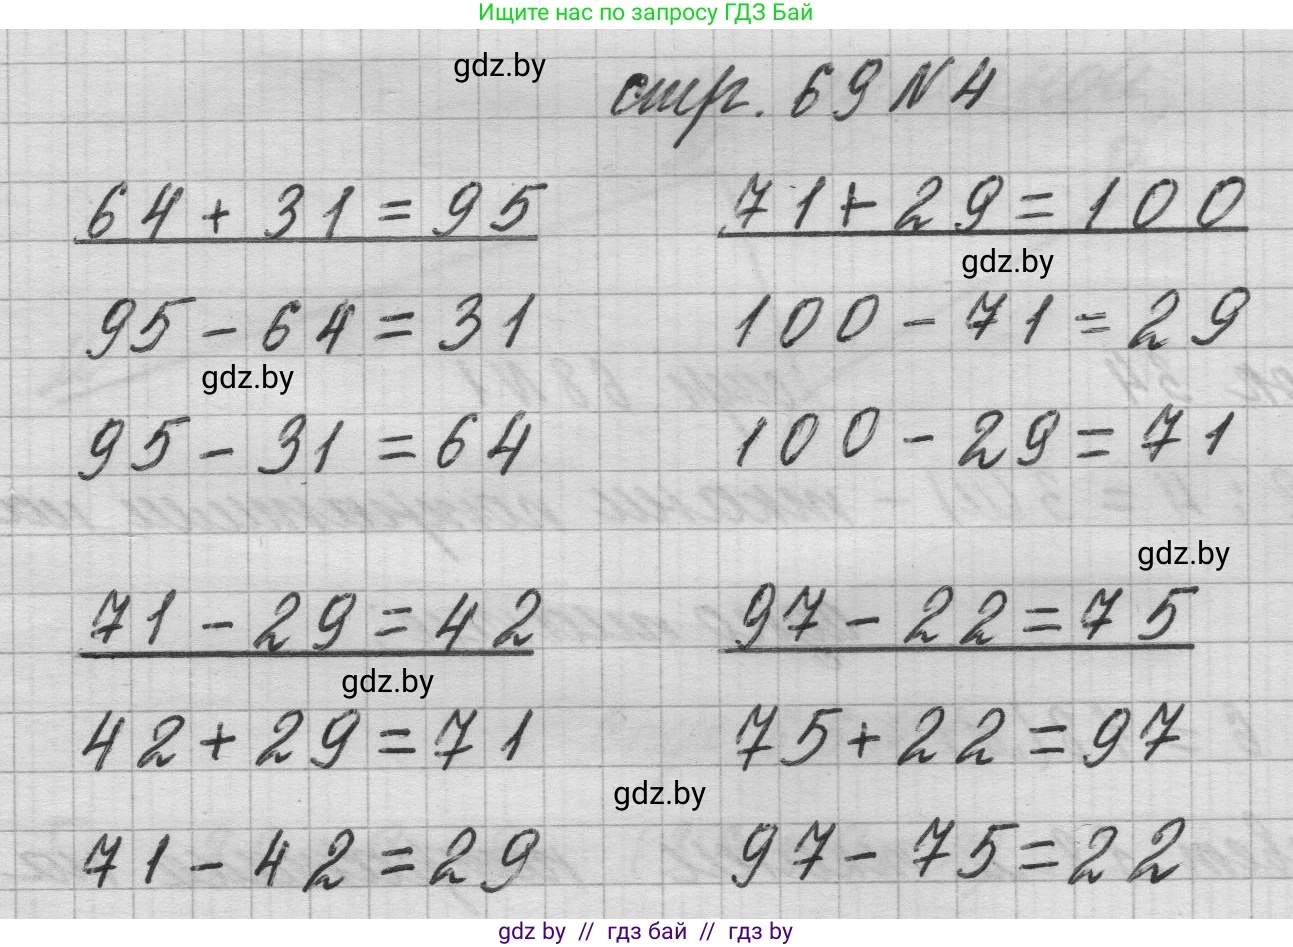 Ищите нас по запросу ГДЗ Бай
gdz.by
стр. 69 N 4
64 + 31 = 95
71 + 29 = 100
gdz.by
95 - 64 = 31
100 - 71 = 29
gdz.by
95 - 31 = 64
100 - 29 = 71
gdz.by
71 - 29 = 42
97 - 22 = 75
gdz.by
42 + 29 = 71
75 + 22 = 97
gdz.by
71 - 42 = 29
97 - 75 = 22
gdz by // гдз бай // гдз by